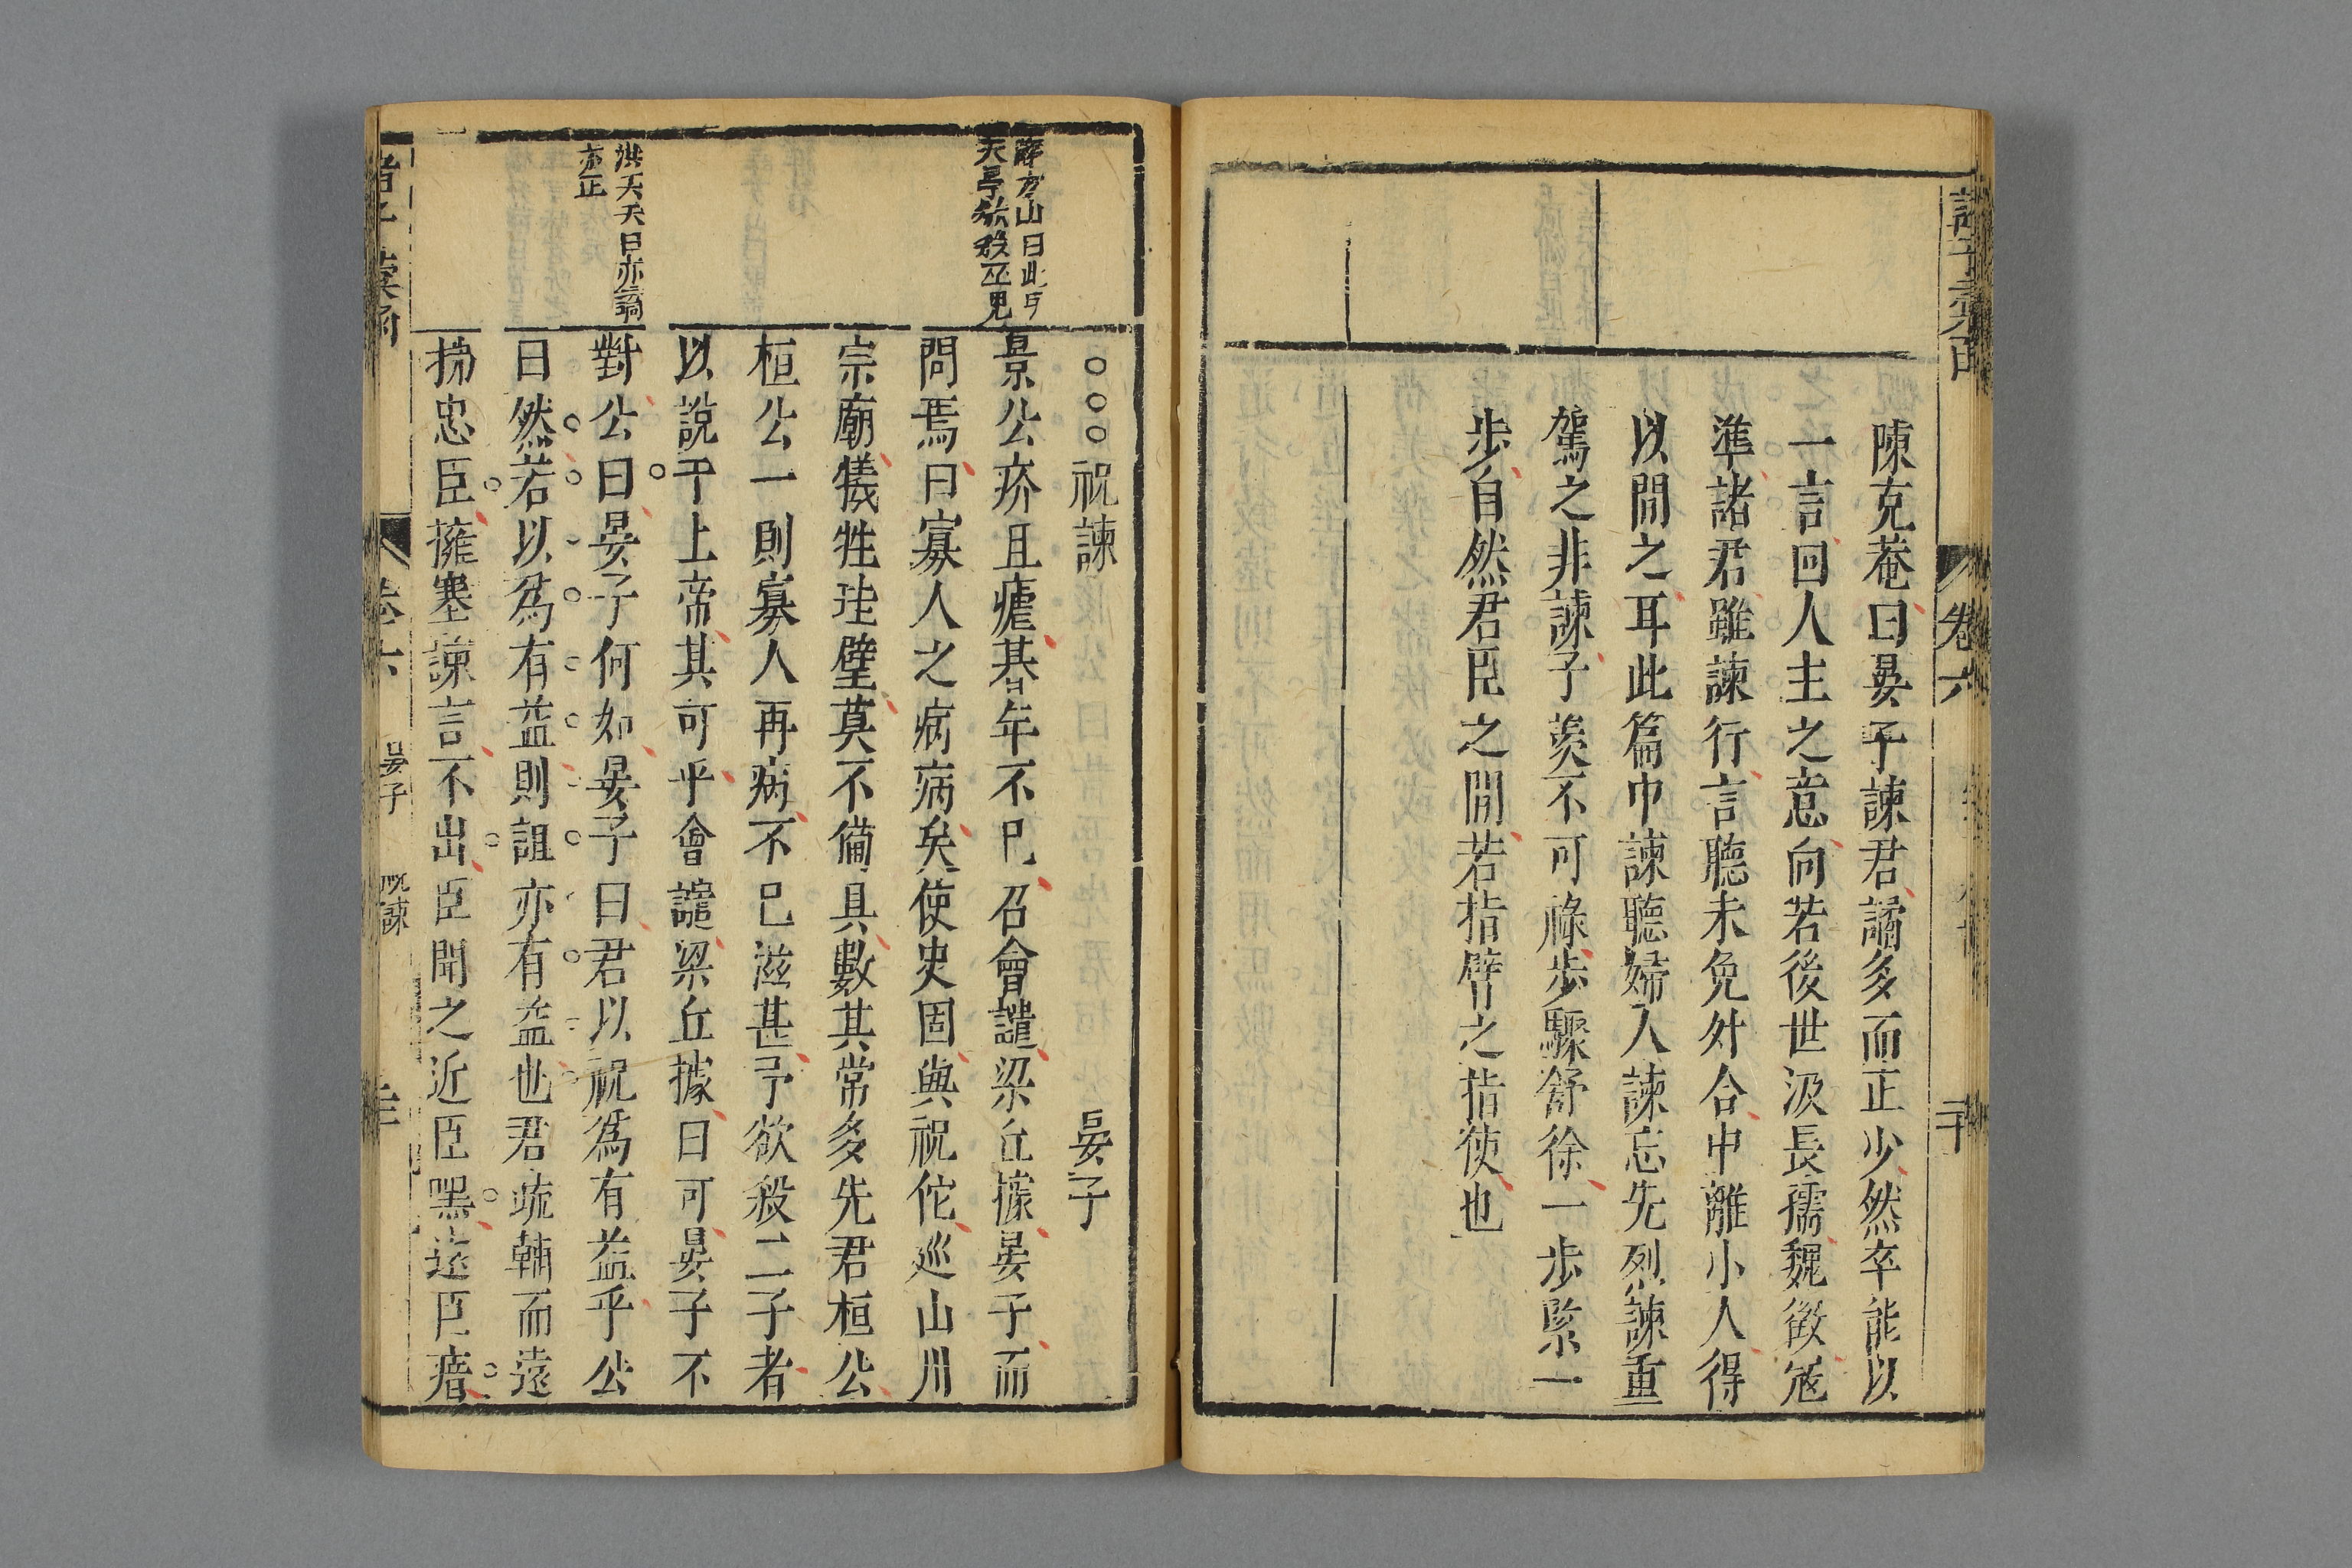 卷六
陳克菴曰晏子諫君譎多而正少然卒能以
一言回人主之意向若後世汲長孺魏徵寇
準諸君雖諫行言聽未免外合中離小人得
以間之耳此篇中諫聽婦人諫忘先烈諫重
駕之非諫子羨不可祿步驟舒徐一步緊一
步自然君臣之間若指臂之指使也
祝諫 晏子
薛方山曰此
天
景公疥且瘧朞年不已召會譴梁丘據晏子而
問焉曰寡人之病病矣使史固與祝佗巡山川
宗廟犧牲珪璧莫不備具數其常多先君桓公
桓公一則寡人再病不已滋甚予欲殺二子者
以說于上帝其可乎會譴梁丘據曰可晏子不
洪
亦正
對公曰晏子何如晏子曰君以祝為有益乎公
曰然若以為有益則詛亦有益也君疏輔而遠
拂忠臣擁塞諫言不出臣聞之近臣嘿遠臣瘖
晏子